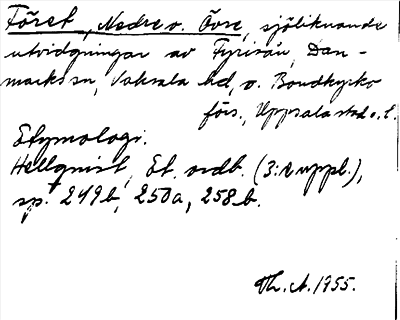 Föret, Nedre o. Övre, sjöliknande
utvidgningar av Fyrisån, Dan-
marks sn, Vaksala hd, o. Bondkyrko
förs., Uppsala stad o. l.
Etymologi.
Hellquist, Et. ordb. (3:e uppl.),
sp. 249b, 250a, 258b.
Th. A. 1955.